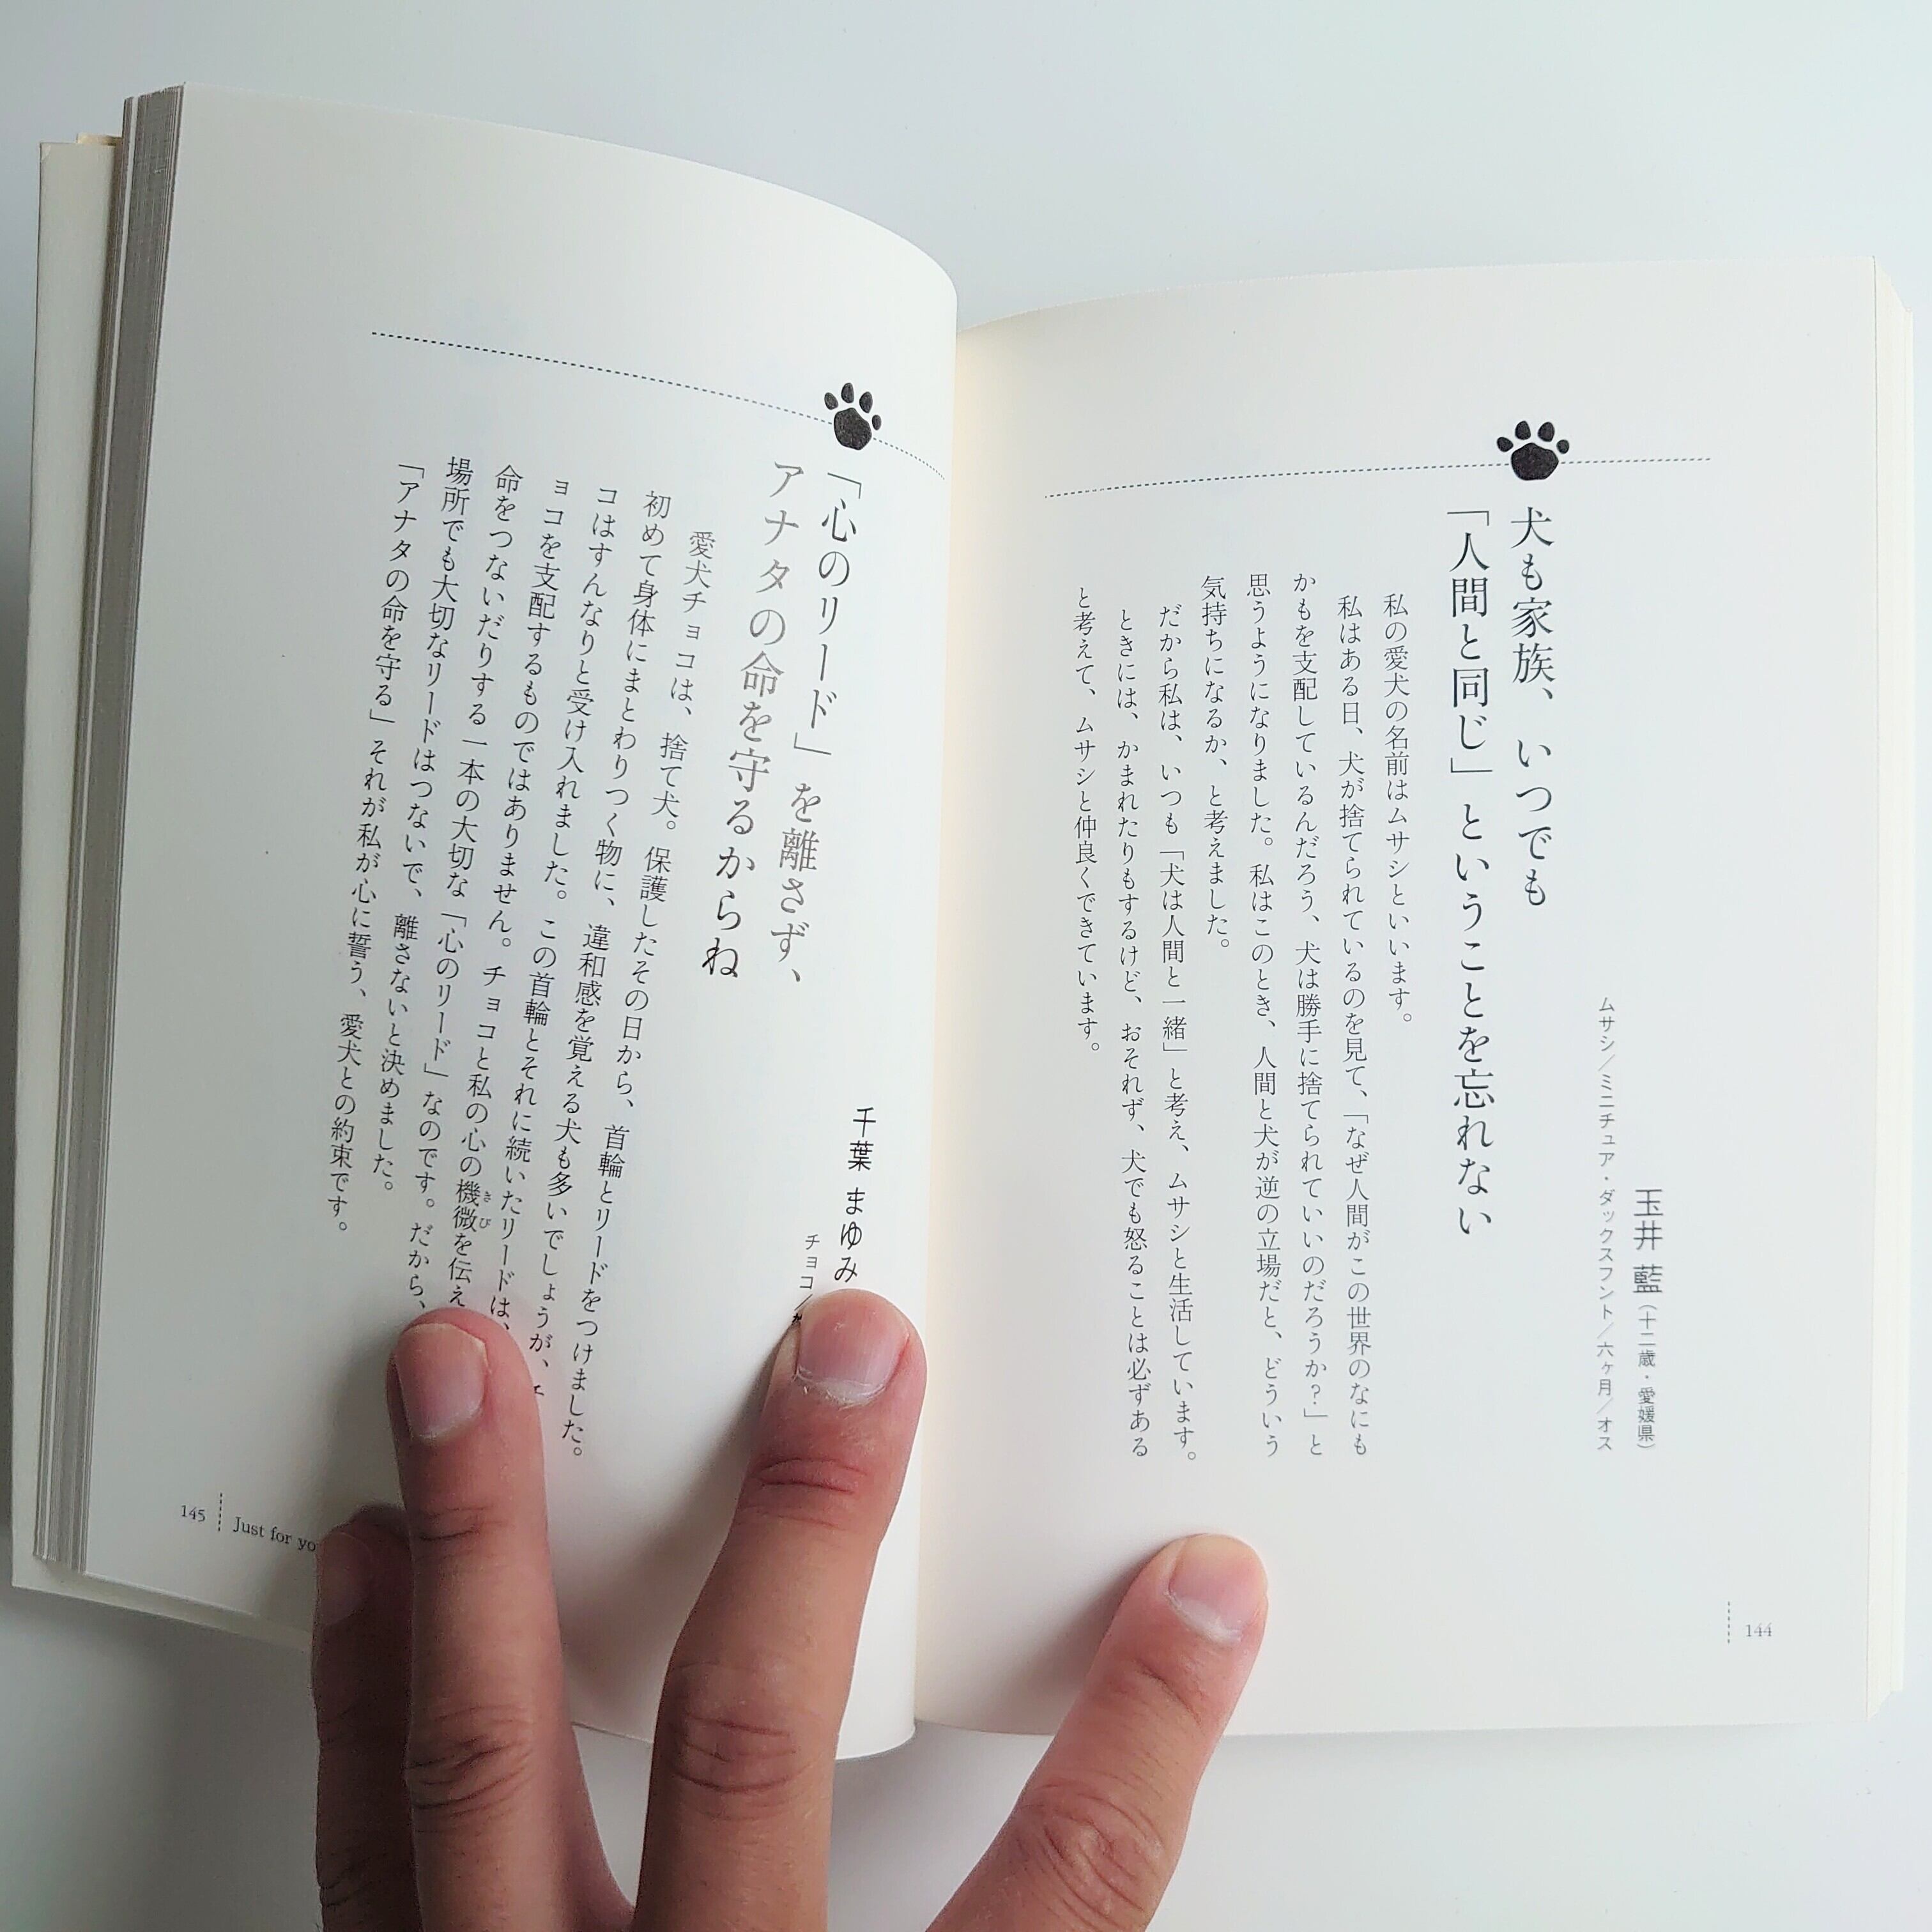 玉井 藍(十二歳・愛媛県)
ムサシ/ミニチュア・ダックスフント/六ヶ月/オス
犬も家族、いつでも
「人間と同じ」ということを忘れない
私の愛犬の名前はムサシといいます。
私はある日、犬が捨てられているのを見て、「なぜ人間がこの世界のなにも
かもを支配しているんだろう、犬は勝手に捨てられていいのだろうか?」と
思うようになりました。私はこのとき、人間と犬が逆の立場だと、どういう
気持ちになるか、と考えました。
だから私は、いつも「犬は人間と一緒」と考え、ムサシと生活しています。
ときには、かまれたりもするけど、おそれず、犬でも怒ることは必ずある
と考えて、ムサシと仲良くできています。
144
千葉 まゆみ
チョコ/
「心のリード」を離さず、
アナタの命を守るからね
愛犬チョコは、捨て犬。保護したその日から、首輪とリードをつけました。
初めて身体にまとわりつく物に、違和感を覚える犬も多いでしょうが、チ
コはすんなりと受け入れました。この首輪とそれに続いたリードは、
ョコを支配するものではありません。チョコと私の心の機微を伝え
きび
命をつないだりする一本の大切な「心のリード」なのです。だから、
場所でも大切なリードはつないで、離さないと決めました。
「アナタの命を守る」それが私が心に誓う、愛犬との約束です。
145
Just for